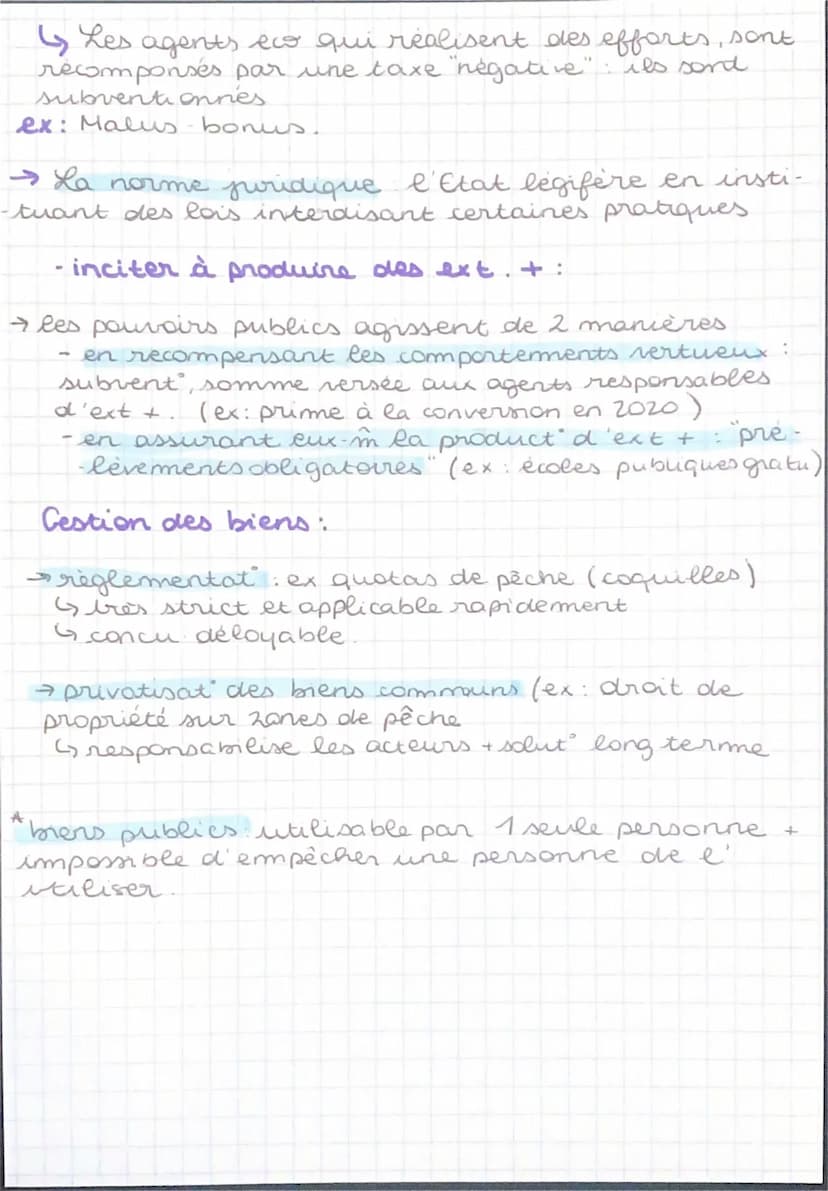 ↳ Les agents eco qui réalisent des efforts, sont
récomponsés par une taxe "négative" : ils sord
subventionnés
ex : Malus - bonus.
→ La norme juridique l'Etat légifère en insti-
-tuant des lois interdisant certaines pratiques
- inciter à produire des ext. + :
→ les pouvoirs publics agissent de 2 manières
- en recompensant les comportements vertueux :
subvent°, somme versée aux agents responsables
d'ext +. (ex : prime à la conversion en 2020)
- en assurant eux-m̂ la product° d'ext + : "pré-
-lèvements obligatoires" (ex : écoles publiques gratu)
Gestion des biens :
→ règlementat° : ex quotas de pêche (coquilles)
↳ très strict et applicable rapidement
↳ concu déloyable.
→ privatisat° des biens communs (ex : droit de
propriété sur zones de pêche
↳ responsabilise les acteurs + solut° long terme
* biens publics : utilisable par 1 seule personne +
impossible d'empêcher une personne de l'
utiliser.